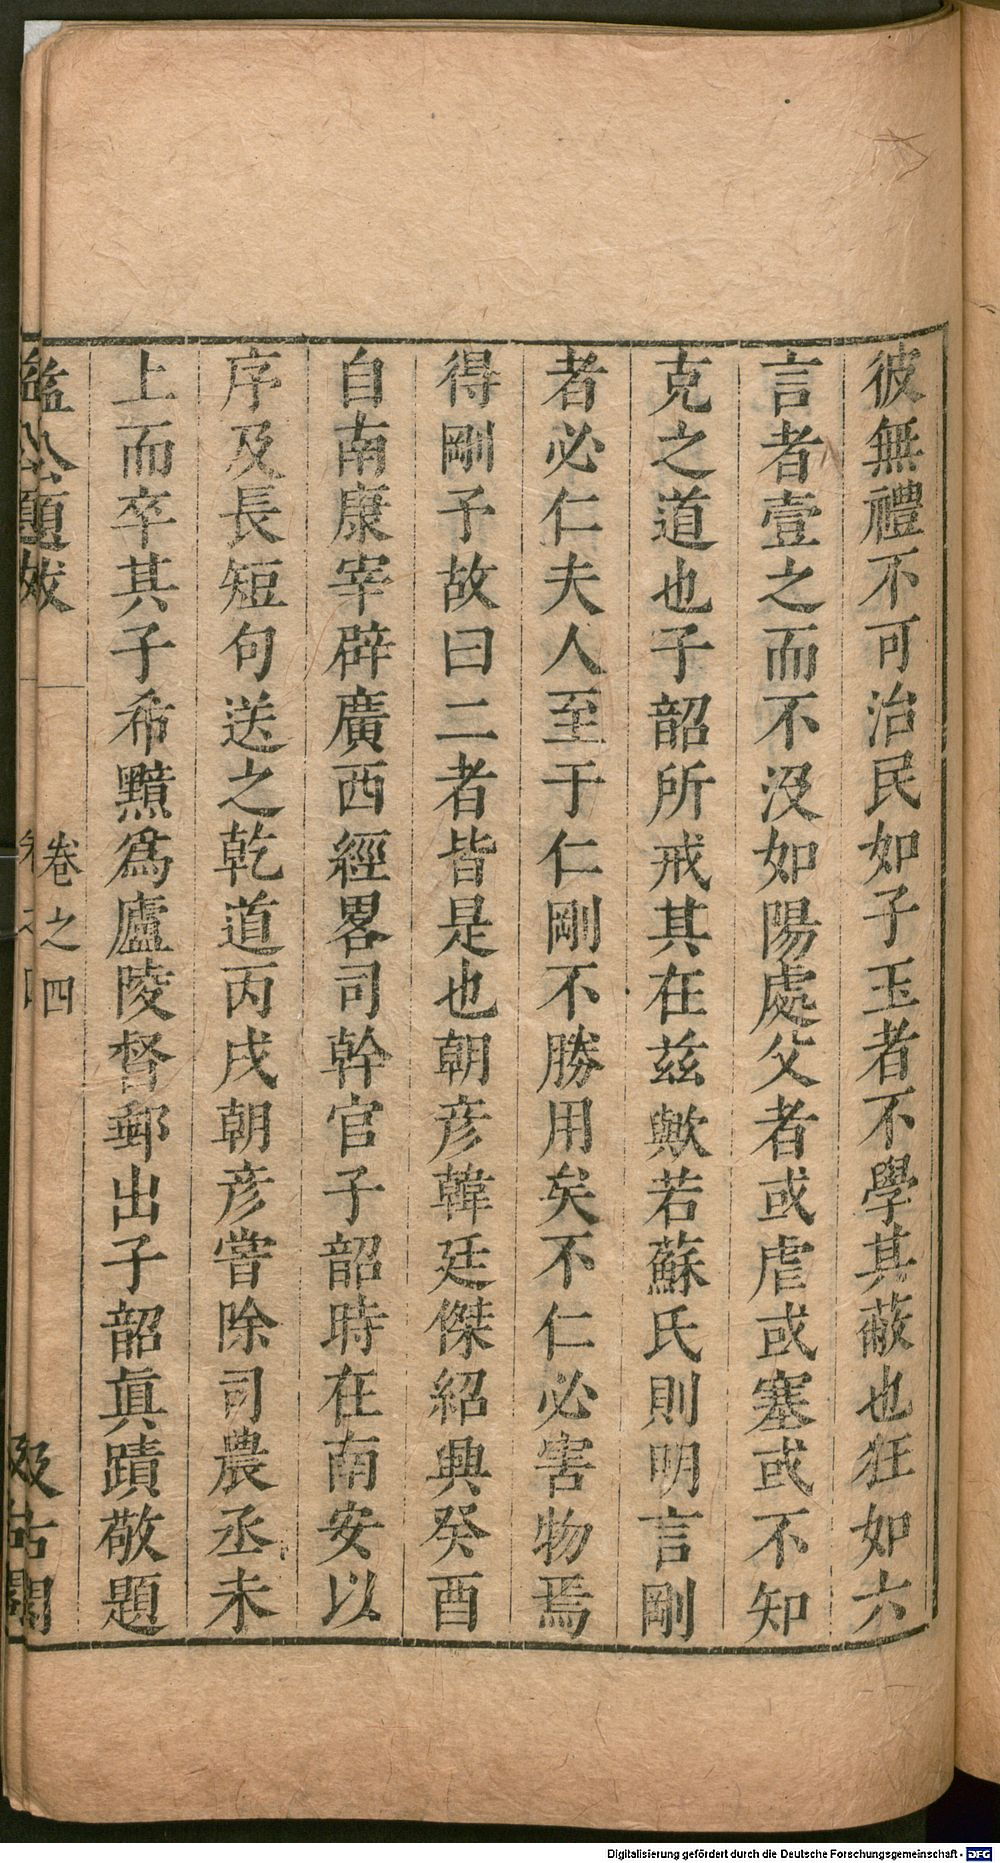 彼無禮不可治民如子玉者不學其蔽也狂如六
言者壹之而不没如陽處父者或虐或塞或不知
克之道也子韶所戒其在兹歟若蘇氏則明言剛
者必仁夫人至于仁剛不勝用矣不仁必害物焉
得剛予故曰二者皆是也朝彦韓廷傑紹興癸酉
自南康宰辟廣西經畧司幹官子韶時在南安以
序及長短句送之乾道丙戌朝彦嘗除司農丞未
上而卒其子希黯爲廬陵督郵出子韶眞蹟敬題
益公題跋
卷之四
汲古閣
Digitalisierung gefördert durch die Deutsche Forschungsgemeinschaft - DFG